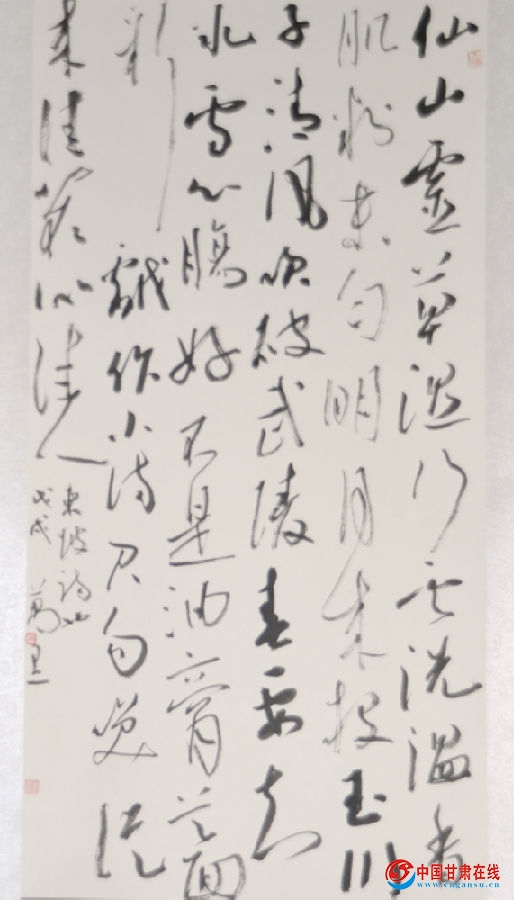 仙山靈草湿行云洗温香
肌粉未匀明月来投玉川
子清風吹破武陵春要知
冰雪心腸好不是油膏首面
新戲作小诗君勿笑從
来佳茗似佳人
東坡詩
戊戌 萬里
中国甘肃在线
www.cngansu.cn